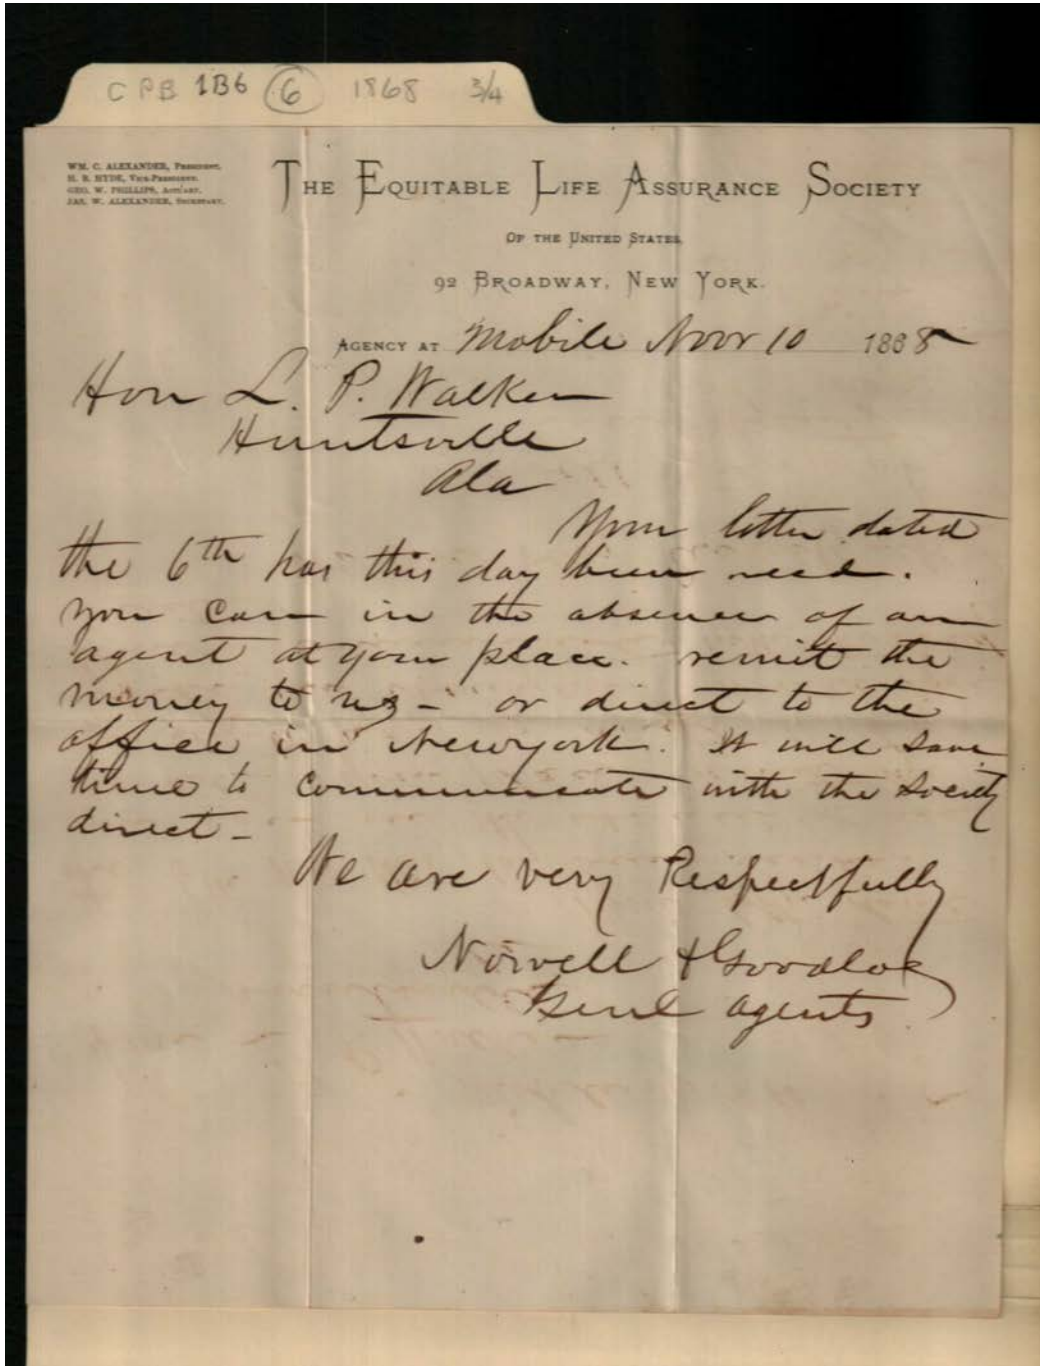 CPB 1B6 6 1868 3/4
WM. C. ALEXANDER, PRESIDENT.
H. B. HYDE, VICE-PRESIDENT.
GEO. W. PHILLIPS, ACTUARY.
JAS. W. ALEXANDER, SECRETARY.
THE EQUITABLE LIFE ASSURANCE SOCIETY
OF THE UNITED STATES,
92 BROADWAY, NEW YORK.
AGENCY AT Mobile Novr 10 1868
Hon L. P. Walker
Huntsville
Ala
Your letter dated
the 6th has this day been recd.
you can in the absence of an
agent at your place. remit the
money to us - or direct to the
office in Newyork. It will save
time to communicate with the society
direct -
We are very Respectfully
Norvell & Goodloe
Genl agents